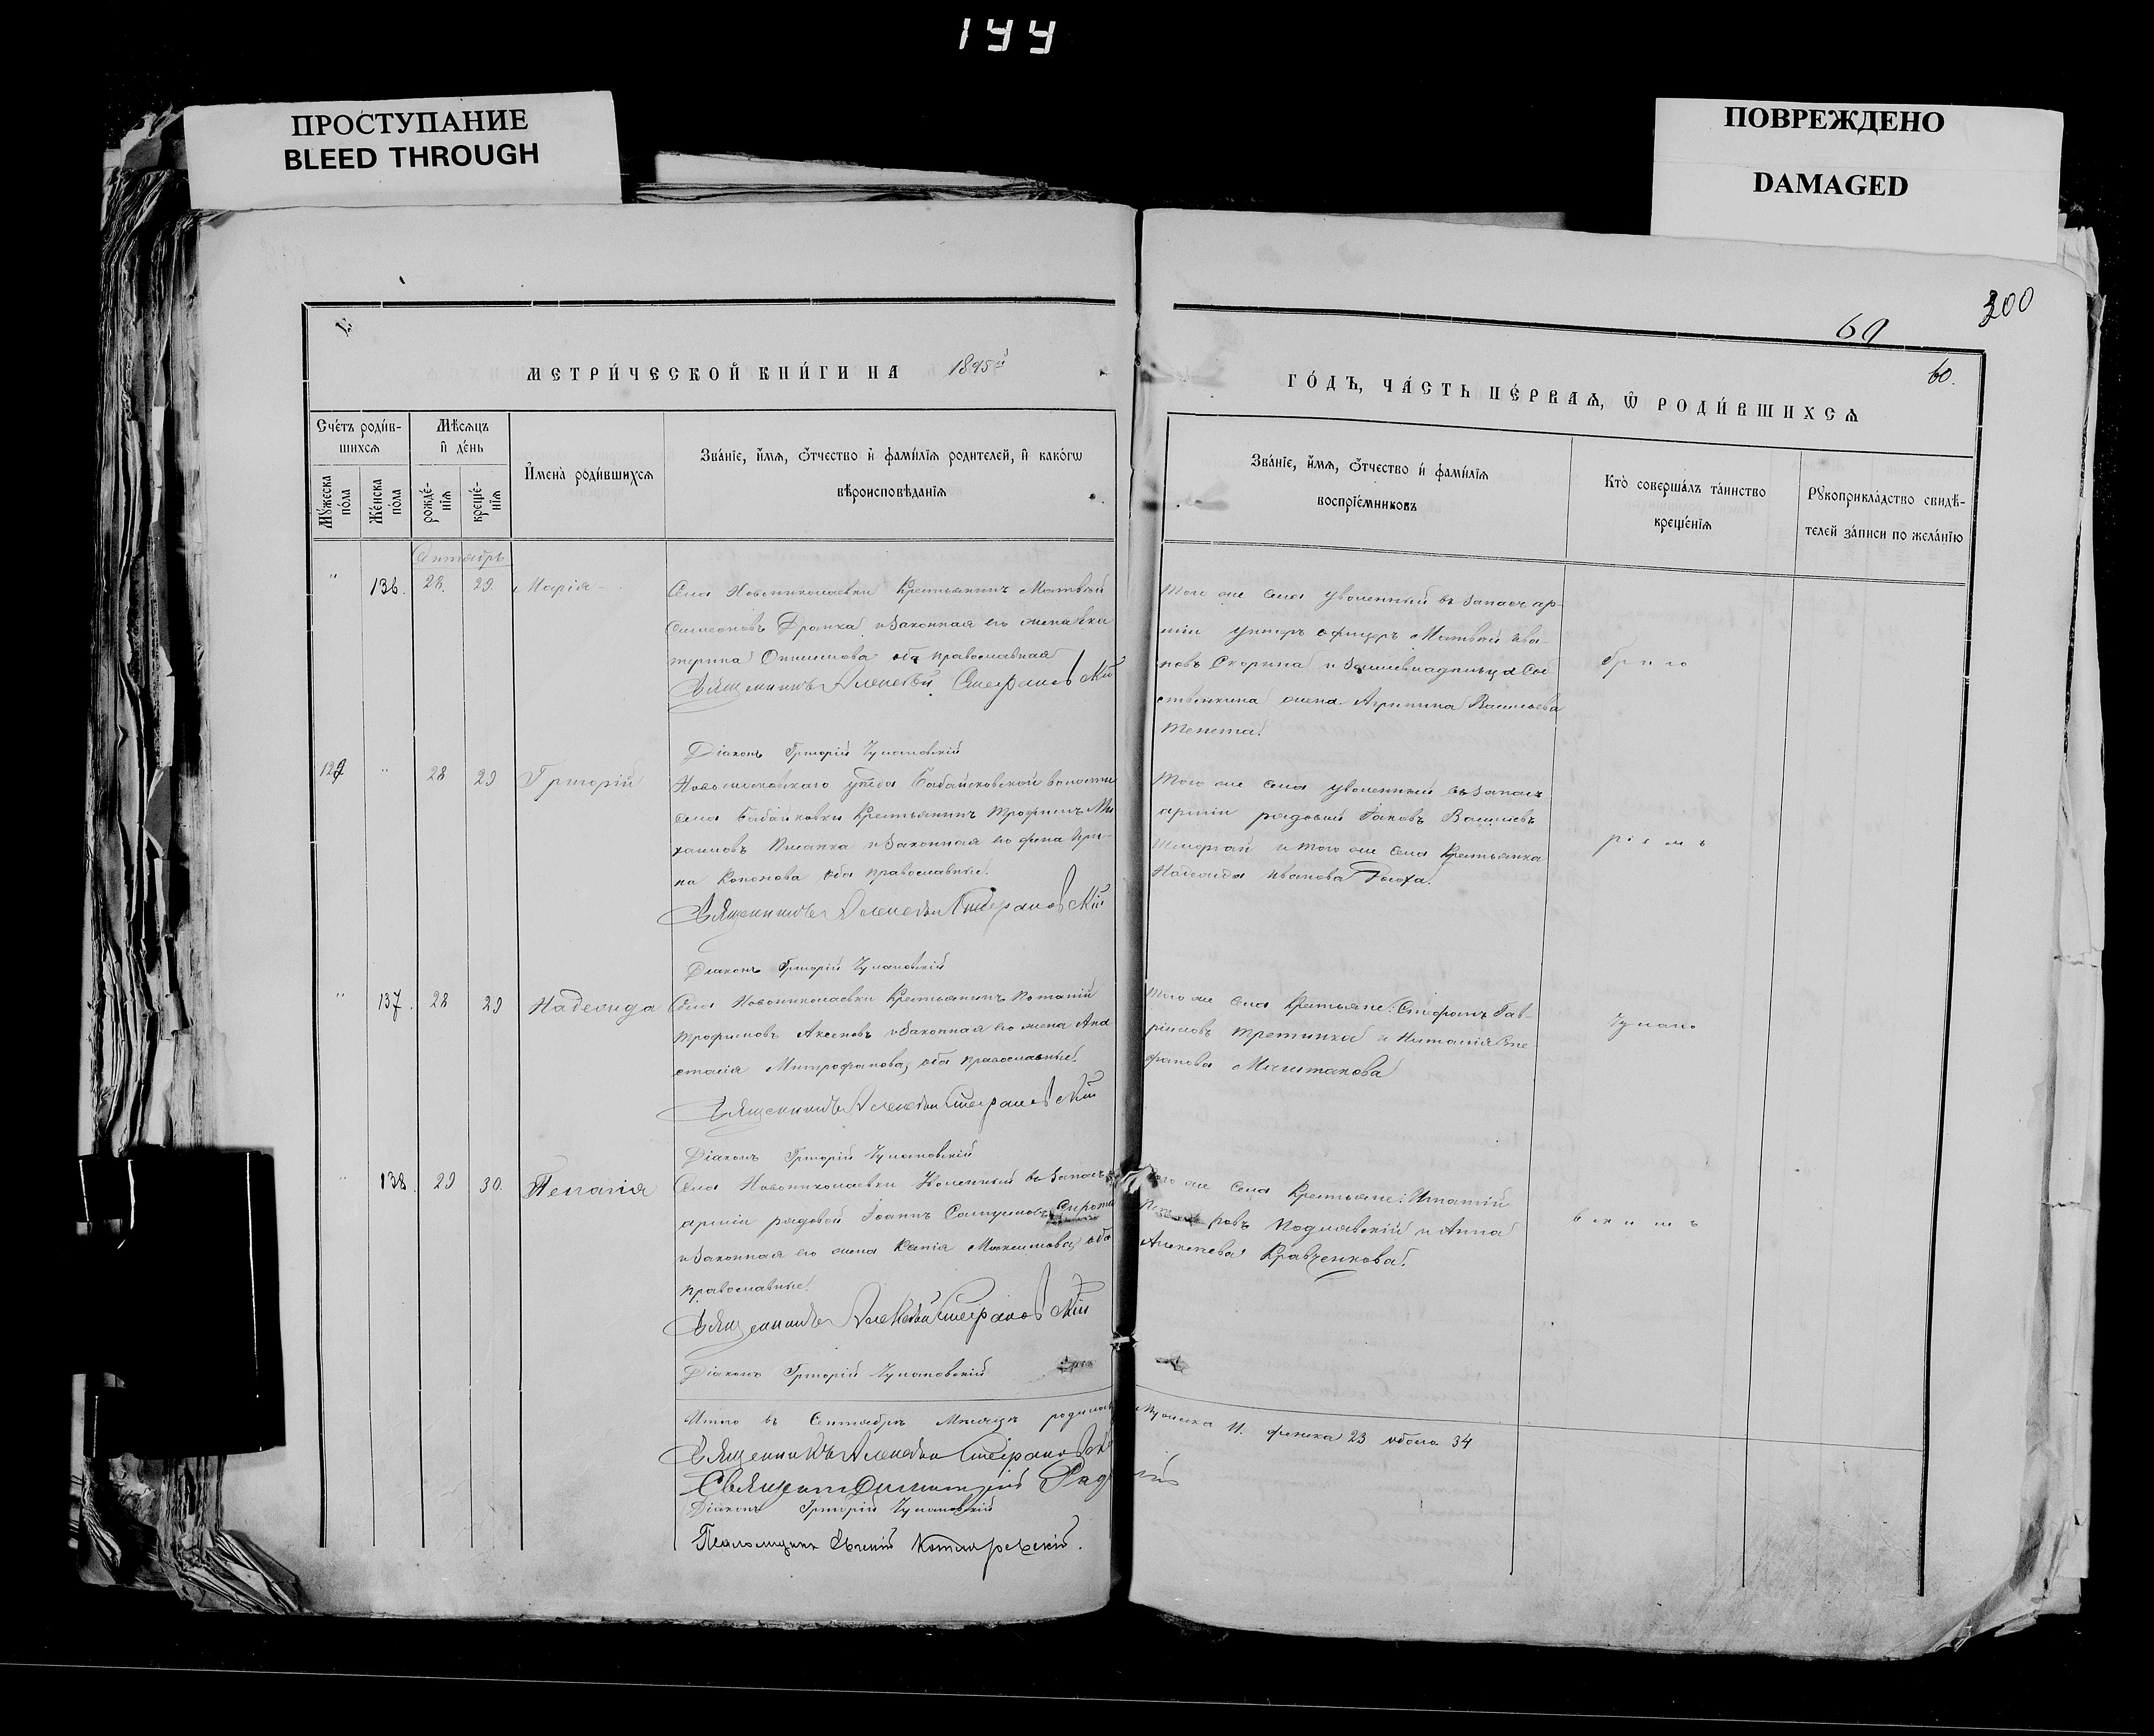 144
ПРОСТУПАНИЕ
BLEED THROUGH
ПОВРЕЖДЕНО
DAMAGED
300
60
60.
МЕТРИ́ЧЕСКОЙ КНИ́ГИ НА 1895й
ГО́ДЪ, ЧА́СТЬ ПЕ́РВАѦ, Ѡ РОДИ́ВШИХСѦ
Сче́тъ роди́в-
шихсѧ
Мꙋ́жеска
по́ла
Же́нска
по́ла
Мѣ́сѧцъ
и҆ де́нь
рожде́-
нїѧ
креще́-
нїѧ
И҆́мена̀ роди́вшихсѧ
Зва́нїе, и҆́мѧ, ѻ҆́тчество и҆ фами́лїѧ родителей, и҆ како́гѡ
вѣроисповѣ́данїѧ
Зва́нїе, и҆́мѧ, ѻ҆́тчество и҆ фами́лїѧ
воспрїе́мниковъ
Кто̀ соверша́лъ та́инство
креще́нїѧ
Рꙋкоприкла́дство свидѣ́-
телей за́писи по жела́нїю
Сентябрь
" 136. 28. 29. Марія
Села Новониколаевки Крестьянинъ Матвѣй
Симеоновъ Дронка и Законная его жена Ека
терина Онисимова оба православная
Священникъ Алексѣй Стефановскій
Діаконъ Григорій Чумановскій
Того же села уволенный въ запасъ ар-
міи унтеръ офицеръ Матвѣй Ива-
новъ Скорина и Землевладѣльца Соб
ственника жена Агрипина Васильева
Тенета.
Григо
129 " 28 29 Григорій
Новомосковскаго уѣзда Бабайковской волости
села Бабайковки Крестьянинъ Трофимъ Ми
хаиловъ и Законная его жена Ири-
на Кононова оба православные.
Священникъ Алексѣй Стефановскій
Діаконъ Григорій Чумановскій
Того же села уволенный въ запасъ
арміи рядовый Іаковъ Васильевъ
и того же села Крестьянка
Надежда Иванова
ріемъ
" 137. 28 29 Надежда
Села Новониколаевки Крестьянинъ Потапій
Трофимовъ Аксеновъ и Законная его жена Ана
стасія Митрофанова, оба православные.
Священникъ Алексѣй Стефановскій
Діаконъ Григорій Чумановскій
Того же села Крестьяне: Стефанъ Гав-
ріиловъ и Наталія Сте
фанова Маштакова
Чумано
" 138. 29 30. Пелагія
Села Новониколаевки Уволенный въ Запасъ
арміи рядовой Іоаннъ Сампсоновъ Сирота
и Законная его жена Ксенія Максимова, оба
православные.
Священникъ Алексѣй Стефановскій
Діаконъ Григорій Чумановскій
Того же села Крестьяне: Игнатій
ровъ и Анна
Алексѣева Кравченкова.
вскимъ
Итого въ Сентябрѣ Мѣсяцѣ родилось мужеска 11. женска 23 обоего 34
Священникъ Алексѣй Стефановскій
Священ. Димитрій
Діаконъ Григорій Чумановскій
Псаломщикъ Евгеній Котляревскій.